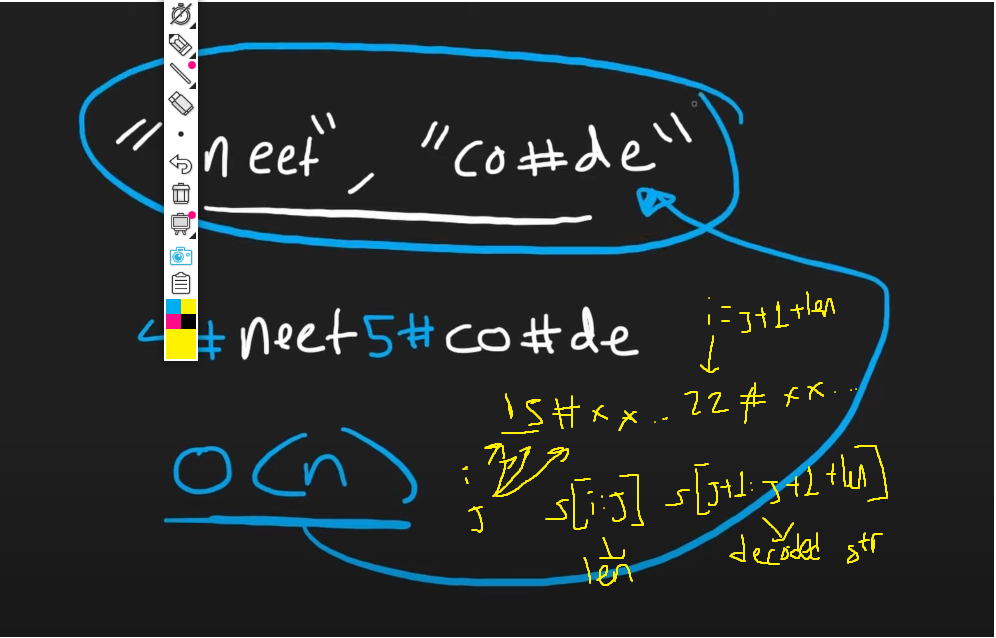 "neet", "co#de"
4#neet5#co#de
i = j+1+len
15#xx.. 22#xx...
O(n)
i
j
s[i:j] s[j+1:j+1+len]
len
decoded str